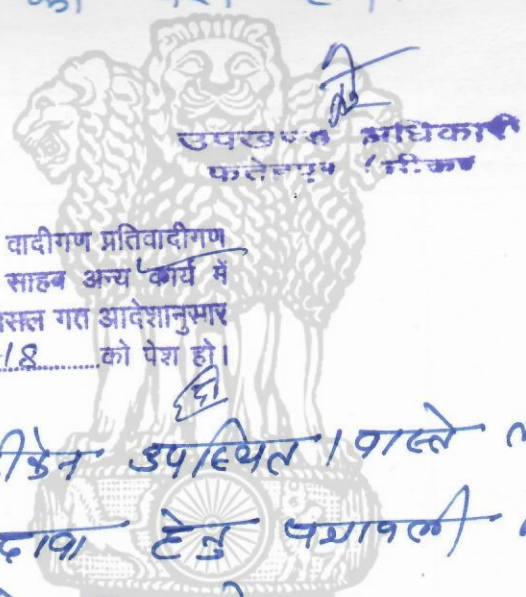 उपखण्ड अधिकारी
फतेहपुर (सीकर
वादीगण प्रतिवादीगण
साहब अन्य कार्य में
सल गत आदेशानुसार
18 को पेश हो।
उपस्थित । वास्ते
दावा हेतु पत्रावली